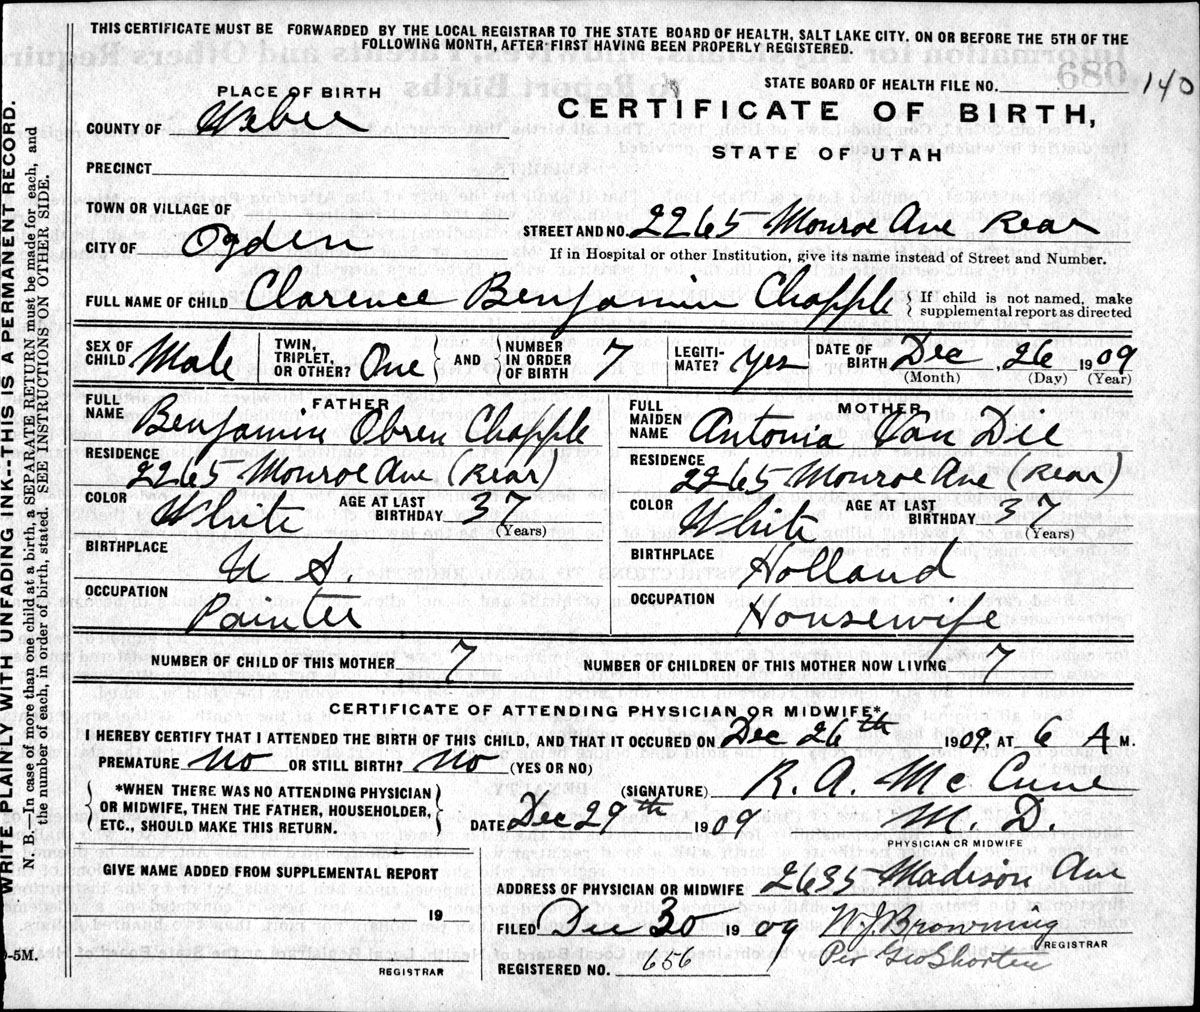 THIS CERTIFICATE MUST BE FORWARDED BY THE LOCAL REGISTRAR TO THE STATE BOARD OF HEALTH, SALT LAKE CITY, ON OR BEFORE THE 5TH OF THE
FOLLOWING MONTH, AFTER FIRST HAVING BEEN PROPERLY REGISTERED.
STATE BOARD OF HEALTH FILE NO. 140
PLACE OF BIRTH
CERTIFICATE OF BIRTH,
COUNTY OF Weber
STATE OF UTAH
PRECINCT
TOWN OR VILLAGE OF
STREET AND NO. 2265 Monroe Ave Rear
CITY OF Ogden
If in Hospital or other Institution, give its name instead of Street and Number.
FULL NAME OF CHILD Clarence Benjamin Chapple { If child is not named, make
supplemental report as directed
SEX OF CHILD Male TWIN, TRIPLET, OR OTHER? One } AND { NUMBER IN ORDER OF BIRTH 7 LEGITI- MATE? Yes DATE OF BIRTH Dec 26 1909
(Month) (Day) (Year)
FATHER MOTHER
FULL NAME Benjamin Obren Chapple FULL MAIDEN NAME Antonia Van Die
RESIDENCE 2265 Monroe Ave (Rear) RESIDENCE 2265 Monroe Ave (Rear)
COLOR White AGE AT LAST BIRTHDAY 37 (Years) COLOR White AGE AT LAST BIRTHDAY 37 (Years)
BIRTHPLACE U S. BIRTHPLACE Holland
OCCUPATION Painter OCCUPATION Housewife
NUMBER OF CHILD OF THIS MOTHER 7 NUMBER OF CHILDREN OF THIS MOTHER NOW LIVING 7
CERTIFICATE OF ATTENDING PHYSICIAN OR MIDWIFE*
I HEREBY CERTIFY THAT I ATTENDED THE BIRTH OF THIS CHILD, AND THAT IT OCCURED ON Dec 26th 1909, AT 6 A M.
PREMATURE No OR STILL BIRTH? No (YES OR NO)
{ *WHEN THERE WAS NO ATTENDING PHYSICIAN
OR MIDWIFE, THEN THE FATHER, HOUSEHOLDER,
ETC., SHOULD MAKE THIS RETURN. }
(SIGNATURE) R. A. McCune
DATE Dec 29th 1909 M. D.
PHYSICIAN OR MIDWIFE
GIVE NAME ADDED FROM SUPPLEMENTAL REPORT
19
REGISTRAR
ADDRESS OF PHYSICIAN OR MIDWIFE 2635 Madison Ave
FILED Dec 30 1909 W. J. Browning
REGISTRAR
REGISTERED NO. 656 Per Geo Shorten
WRITE PLAINLY WITH UNFADING INK--THIS IS A PERMANENT RECORD.
N. B.--In case of more than one child at a birth, a SEPARATE RETURN must be made for each, and
the number of each, in order of birth, stated. SEE INSTRUCTIONS ON OTHER SIDE.
-5M.